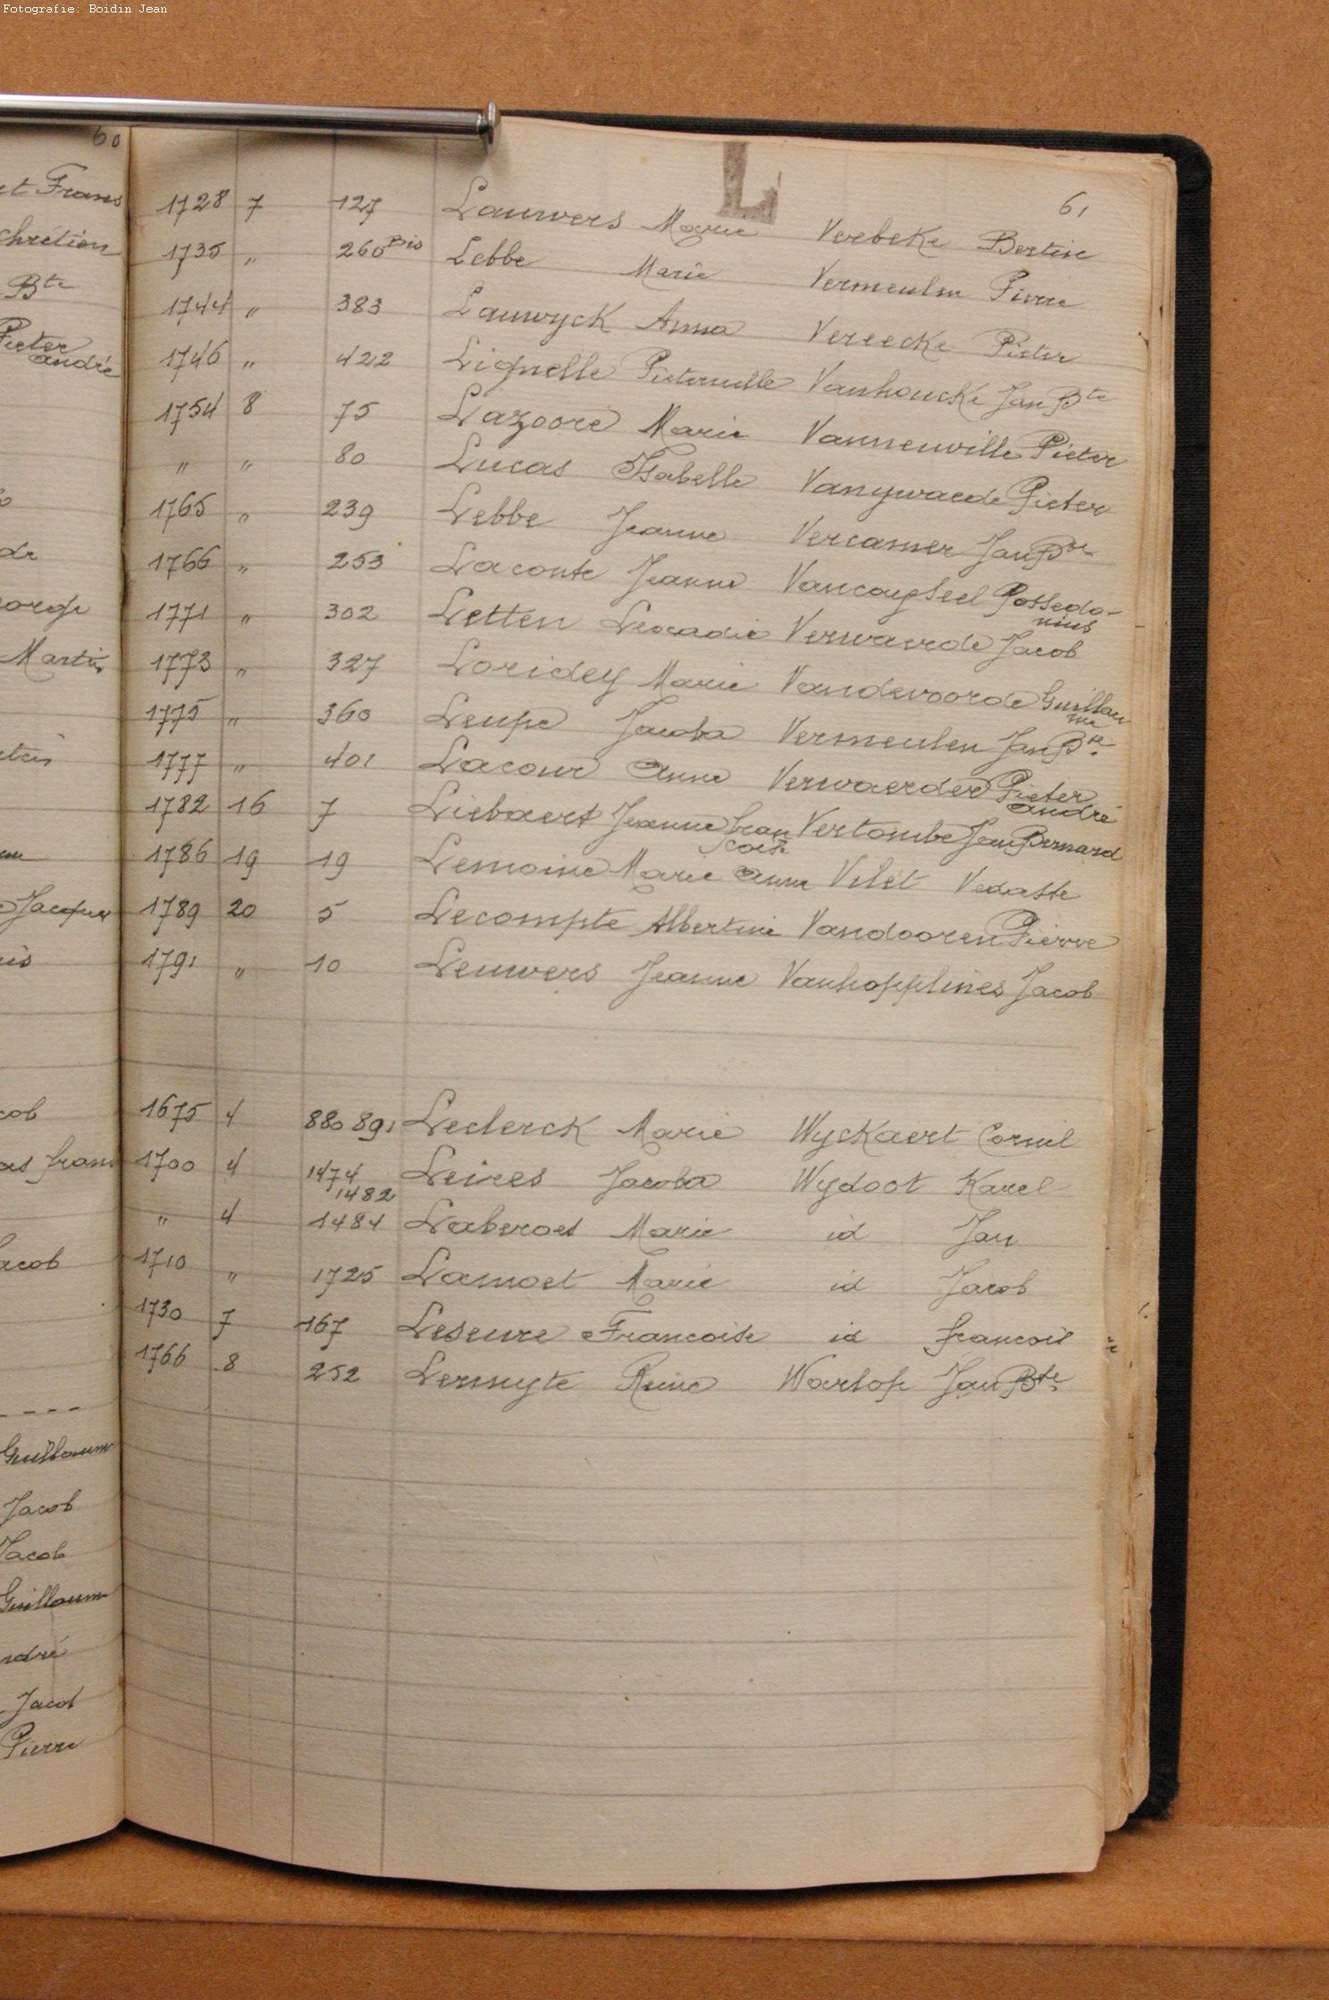 Fotografie: Boidin Jean
60
Frans
chretien
Bte
Pieter
andré
Martin
Jacques
Guillaume
Jacob
Jacob
Guillaume
Jacob
Pierre
L
61
1728 7 127 Lauwers Marie Verbeke Bertin
1735 " 260 Bis Lebbe Marie Vermeulen Pierre
1744 " 383 Lauwyck Anna Vereecke Pieter
1746 " 422 Lignelle Pieternelle Vanhoucke Jan Bte
1754 8 75 Lazoore Marie Vanneuville Pieter
" " 80 Lucas Isabelle Vanywaede Pieter
1765 " 239 Lebbe Jeanne Vercamer Jan Bte
1766 " 253 Laconte Jeanne Vancayseel Possedo-
nius
1771 " 302 Letten Leocadie Verwaerde Jacob
1773 " 327 Loridey Marie Vandevoorde Guillau
me
1775 " 360 Leupe Jacoba Vermeulen Jan Bte
1777 " 401 Lacour Anne Verwaerder Pieter
andré
1782 16 7 Liebaert Jeanne fran Vertombe Jean Bernard
coise
1786 19 19 Lemoine Marie Anne Vilet Vedaste
1789 20 5 Lecompte Albertine Vandooren Pierre
1791 " 10 Leuwers Jeanne Vanhopplines Jacob
1675 4 880 891 Leclerck Marie Wyckaert Cornil
1700 4 1474 Leires Jacoba Wydoot Karel
1482
" 4 1484 Laberoes Marie id Jan
1710 " 1725 Lamoet Marie id Jacob
1730 7 167 Leseure Francoise id francois
1766 8 252 Lermyte Reine Warlop Jan Bte